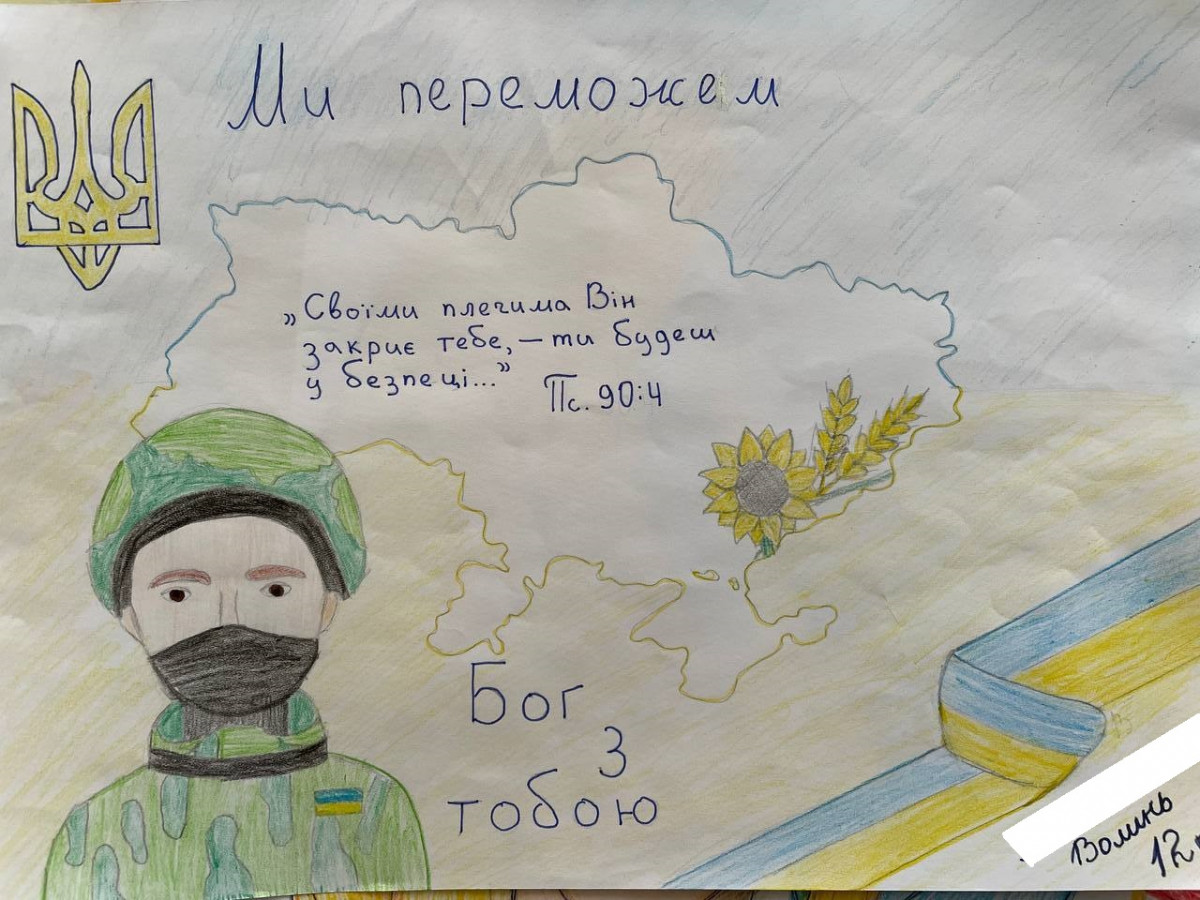 Ми переможем
„Своїми плечима Він
закриє тебе, – ти будеш
у безпеці..."
Пс. 90:4
Бог
з
тобою
Волинь
12